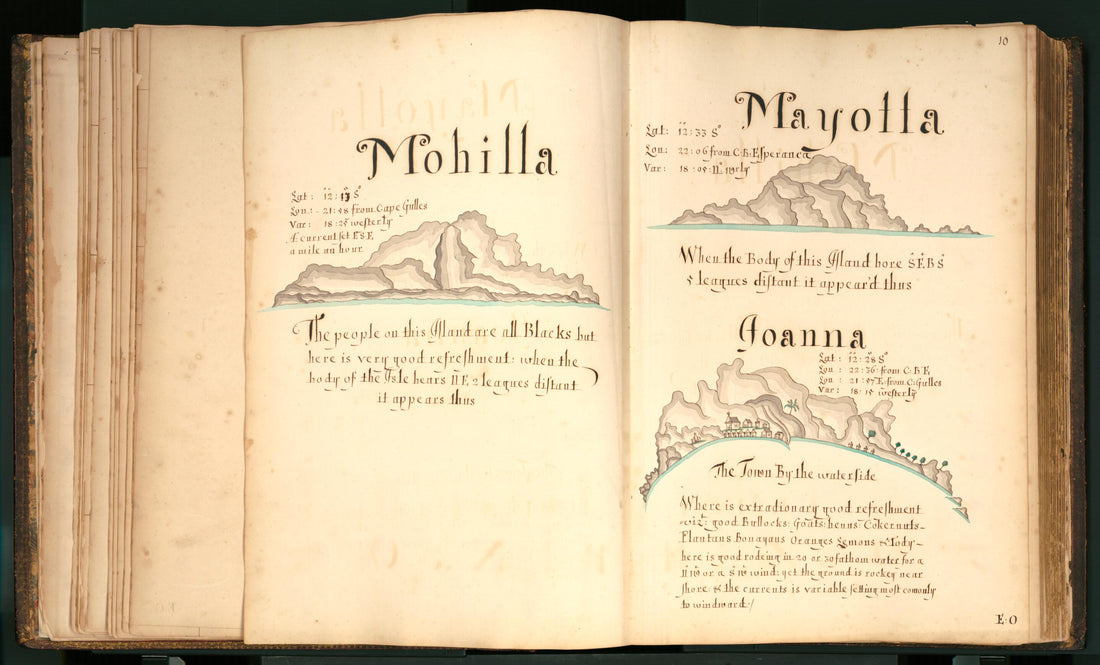 Mohilla
Lat: 12:13 S°
Lon: 21:58 from Cape Gulles
Var: 18:25 westerly
Æ current set E S E
a mile an hour
The people on this Island are all Blacks but
here is very good refreshment: when the
body of the Isle bears N E 2 leagues distant
it appears thus
10
Mayotta
Lat: 12:33 S°
Lon: 22:06 from C: B: Esperanca
Var: 18:05: westerly
When the Body of this Island bore S E B S
5 leagues distant it appear'd thus
Joanna
Lat: 12:28 S°
Lon: 22:36: from C: B E
Lon: 21:57 E: from: C: Gulles
Var: 18:15 westerly
The Town By the waterside
Where is extradionary good refreshment
vizt: good Bullocks: Goats: henns: Cokernuts
Plantans Bonanans Oranges Lemons & Tody
here is good rodeing in 20 or 30 fathom water for a
N W or a S W wind: yet the ground is rockey near
shore: & the currents is variable setting most comonly
to windward:/
E: O